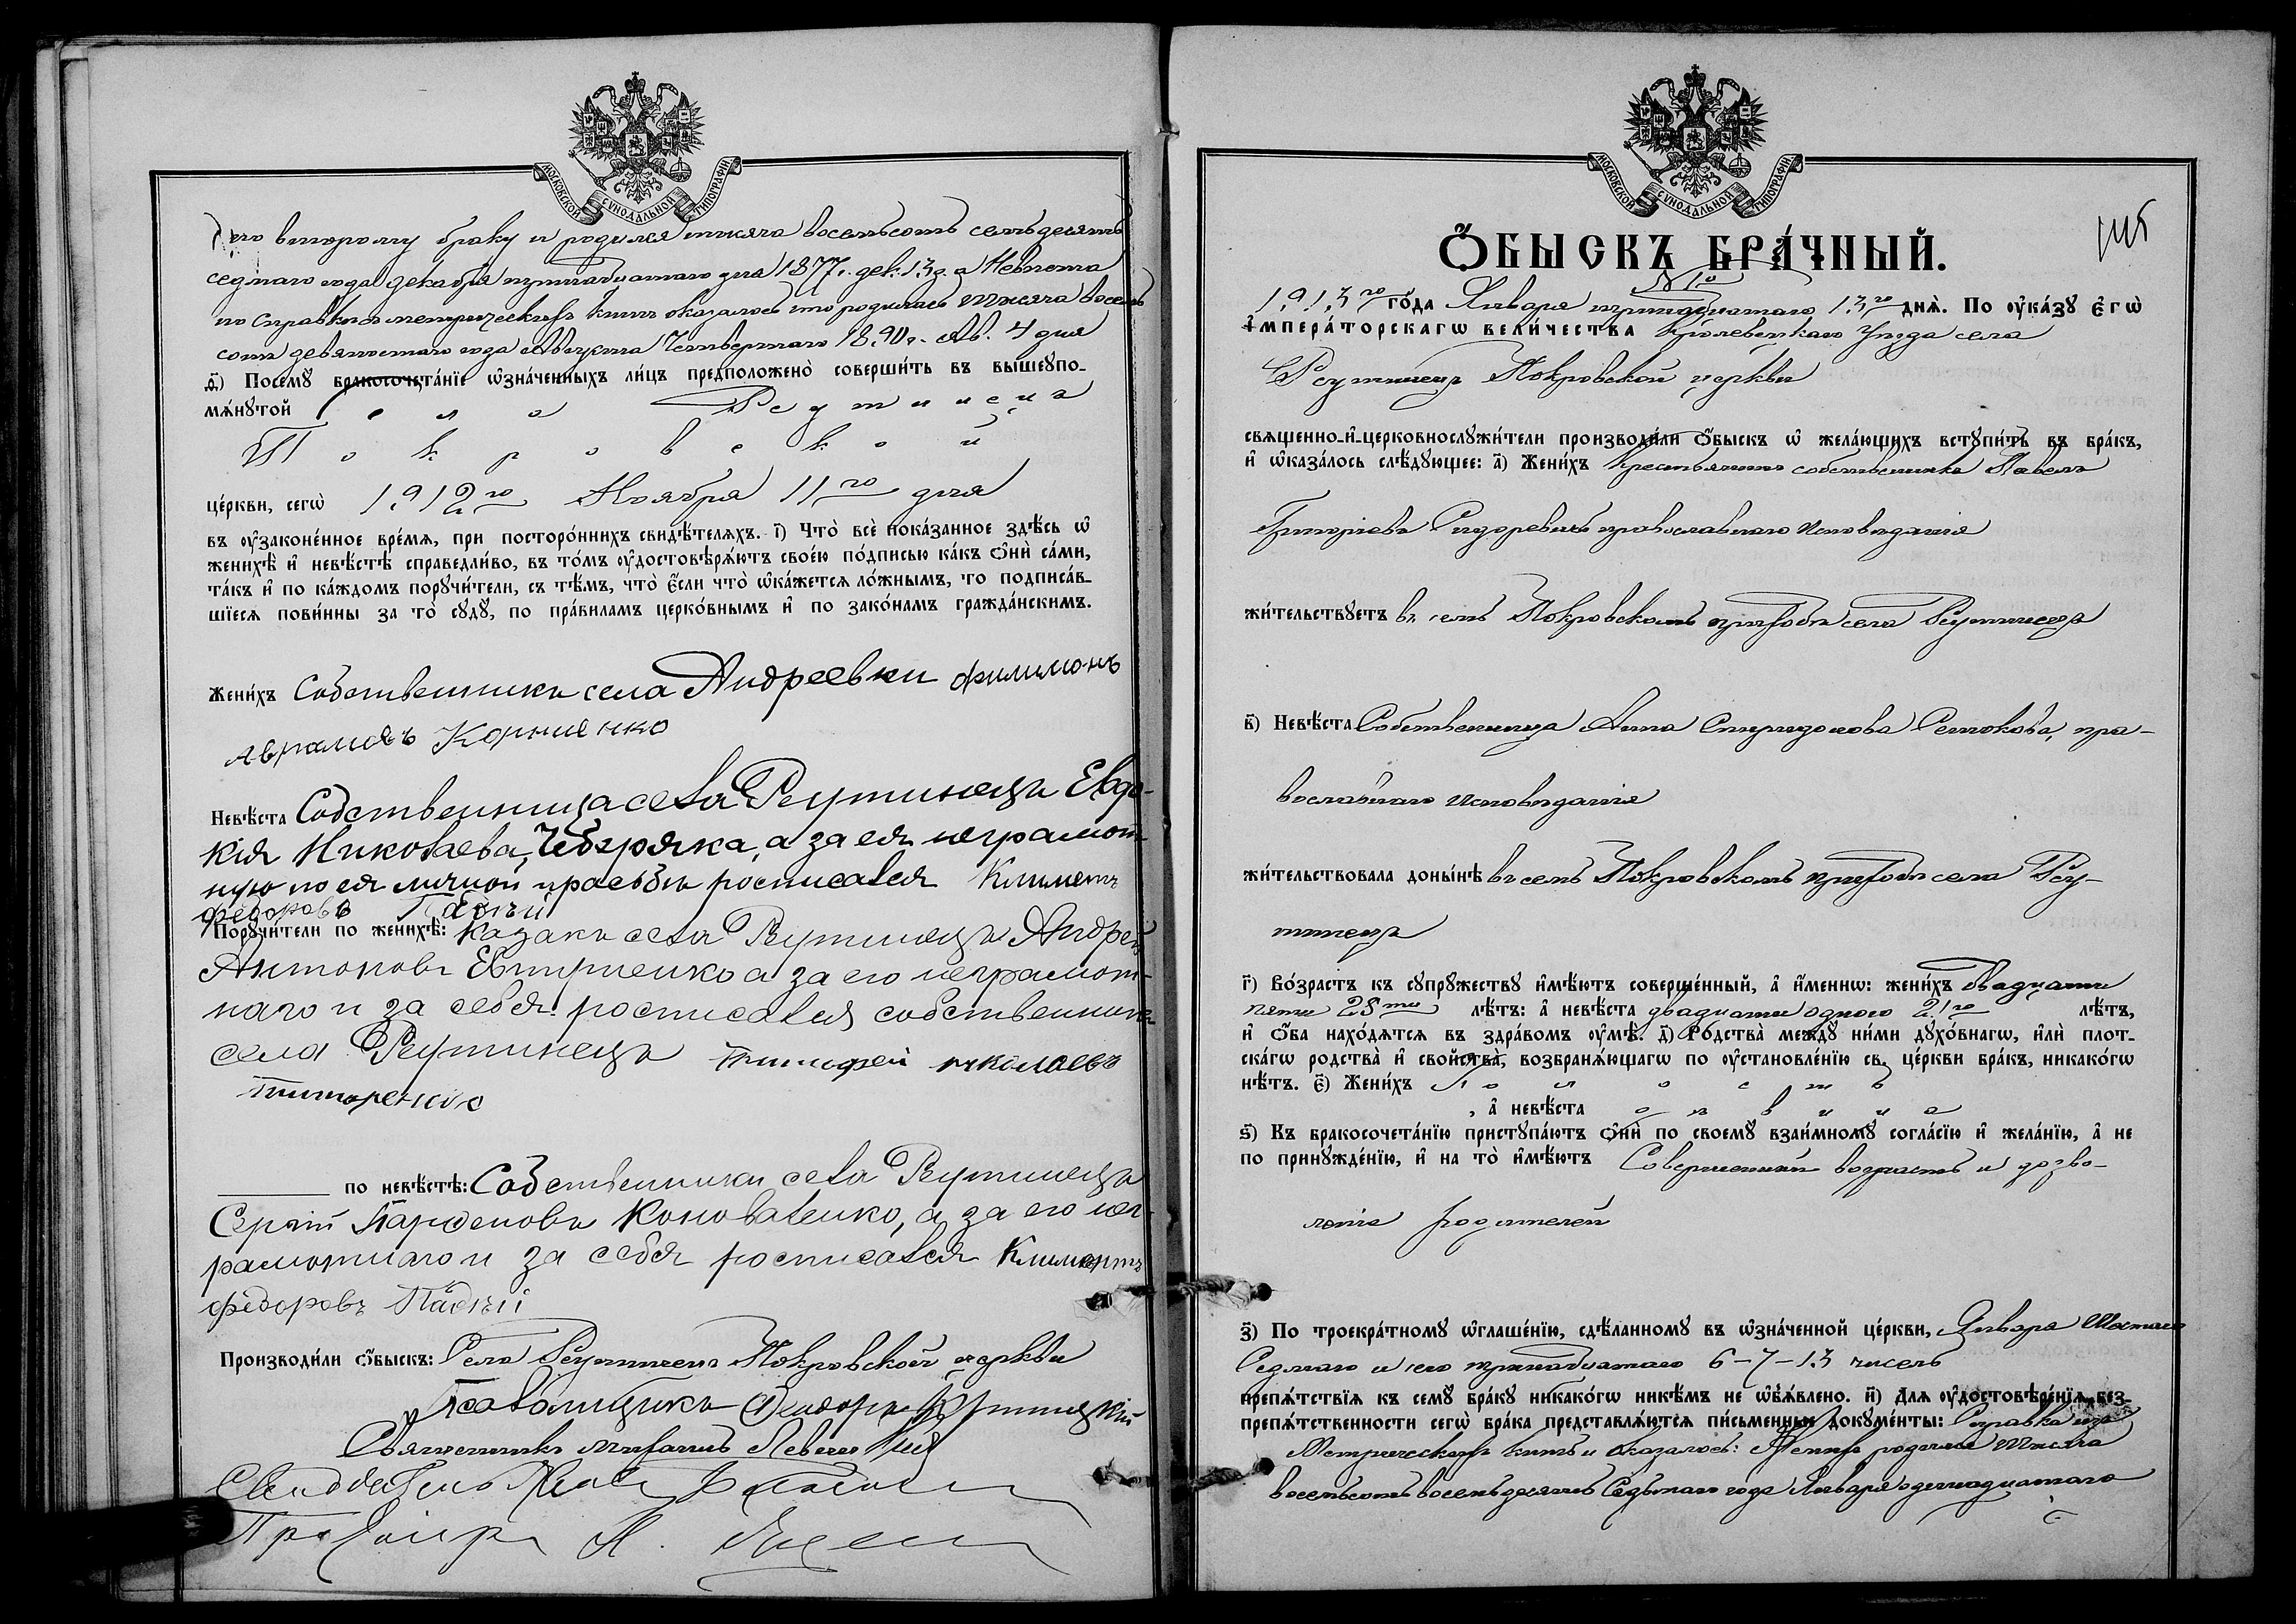 МОСКОВСКОЙ СѴНОДАЛЬНОЙ ТИПОГРАФІИ
его второму браку и родился тысяча восемьсотъ семьдесятъ
седмаго года декабря тринадцатаго дня 1877 г. дек. 13 д. а Невѣста
по справкѣ метрическихъ книгъ оказалось что родилась тысяча восемь
сотъ девяностаго года Августа Четвертаго 1890 г. Ав. 4 дня
ѳ҃) Посемꙋ бракосочета́нїе ѡ҆зна́ченныхъ ли́цъ предположено̀ соверши́ть въ вышеꙋпо-
мѧ́нꙋтой села Реутинецъ
Покровской
це́ркви, сегѡ̀ 1912 го Ноября 11 го дня
въ ᲂу҆законе́нное вре́мѧ, при посторо́ннихъ свидѣ́телѧхъ. і҃) Что̀ всѐ пока́занное здѣ́сь ѡ҆
женихѣ̀ и҆ невѣ́стѣ справедли́во, въ то́мъ ᲂу҆достовѣрѧ́ютъ свое́ю по́дписью ка́къ ѻ҆нѝ са́ми,
та́къ и҆ по ка́ждомъ порꙋчи́тели, съ тѣ́мъ, что̀ є҆́сли что̀ ѡ҆ка́жетсѧ ло́жнымъ, то подписа́в-
шїесѧ пови́нны за то̀ сꙋдꙋ̀, по пра́виламъ церко́внымъ и҆ по зако́намъ гражда́нскимъ.
Жени́хъ Собственникъ села Андреевки филимонъ
Аврамовъ Корниенко
Невѣ́ста Собственница села Реутинецъ Евдо-
кія Николаева, Чебрряка, а за ея неграмот-
ную по ея личной прозьбѣ росписался Климентъ
федоровъ
Порꙋчи́тели по женихѣ̀: Казакъ села Реутинецъ Андрей
Антоновъ Евтушенко а за его неграмот-
наго и за себя росписался собственникъ
села Реутинецъ тимофей николаевъ
титаренко
по невѣ́стѣ: Собственники села Реутинецъ
Сергій Парфеновъ Коноваленко, а за его нег-
рамотнаго и за себя росписался Климентъ
федоровъ
Производи́ли ѻ҆́быскъ: Села Реутинецъ Покровской церкви
Псаломщикъ
Священникъ Михаилъ
МОСКОВСКОЙ СѴНОДАЛЬНОЙ ТИПОГРАФІИ
Ѻ҆́БЫСКЪ БРА́ЧНЫЙ.
№ 1й
1913 го го́да Января тринадцатаго 13 го днѧ̀. По ᲂу҆ка́зꙋ Є҆гѡ̀
И҆мпера́торскагѡ вели́чества Кролевецкаго уѣзда села
Реутинецъ Покровской церкви
свѧщенно-и҆-церковнослꙋжи́тели производи́ли ѻ҆́быскъ ѡ҆ жела́ющихъ встꙋпи́ть въ бра́къ,
и҆ ѡ҆каза́лось слѣ́дꙋющее: а҃) Жени́хъ крестьянинъ собственникъ Павелъ
Григоріевъ Сидоревичъ православнаго исповѣданія
жи́тельствꙋетъ въ семъ Покровскомъ приходѣ села Реутинецъ
в҃) Невѣ́ста Собственница Анна Спиридонова Сенюкова, пра-
вославнаго исповѣданія
жи́тельствовала доны́нѣ въ семъ Покровскомъ приходѣ села Реу-
тинецъ
г҃) Во́зрастъ къ сꙋпрꙋ́жествꙋ и҆мѣ́ютъ соверше́нный, а҆ и҆́менно: жени́хъ двадцати
пяти 25 ти лѣ́тъ: а҆ невѣ́ста двадцати одного 21 го лѣ́тъ,
и҆ ѻ҆́ба нахо́дѧтсѧ въ здра́вомъ ᲂу҆мѣ̀. д҃) Родства̀ междꙋ̀ ни́ми дꙋхо́внагѡ, и҆лѝ плот-
ска́гѡ родства̀ и҆ свойства̀, возбранѧ́ющагѡ по ᲂу҆становле́нїю св. це́ркви бра́къ, никако́гѡ
нѣ́тъ. є҃) Жени́хъ холостъ
, а҆ невѣ́ста дѣвица
ѕ҃) Къ бракосочета́нїю пристꙋпа́ютъ ѻ҆нѝ по своемꙋ̀ взаи́мномꙋ согла́сїю и҆ жела́нїю, а҆ не
по принꙋжде́нїю, и҆ на то̀ и҆мѣ́ютъ Совершенный возрастъ и дозво-
леніе родителей
з҃) По троекра́тномꙋ ѡ҆глаше́нїю, сдѣ́ланномꙋ въ ѡ҆зна́ченной це́ркви, Января Шестаго
Седмаго и его тринадцатаго 6-7-13 чиселъ
препѧ́тствїѧ къ семꙋ̀ бра́кꙋ никако́гѡ никѣ́мъ не ѡ҆б̾ѧ́влено. и҃) Длѧ ᲂу҆достовѣре́нїѧ без-
препѧ́тственности сегѡ̀ бра́ка представлѧ́ютсѧ пи́сьменные докꙋме́нты: Справка изъ
Метрическихъ книгъ и оказалось: Женихъ родился тысяча
восемьсотъ восемьдесятъ Седьмаго года Января одинадцатаго